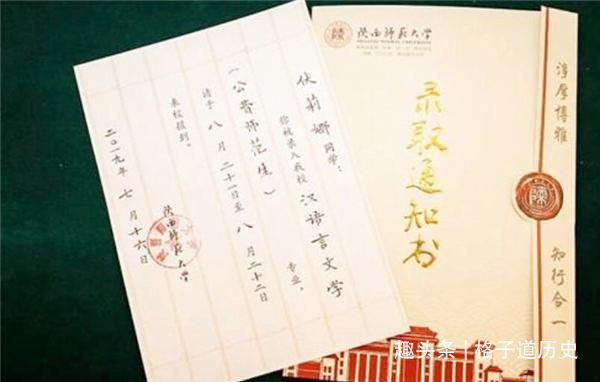 伏莉娜同学:
你被录入我校汉语言文学专业,
(公费师范生)
请于八月二十一日至八月二十二日
来校报到。
陕西师范大学
二〇一九年七月十六日
陕西师范大学
SHAANXI NORMAL UNIVERSITY
录取通知书
淳厚博雅
知行合一
趣头条 | 格子道历史